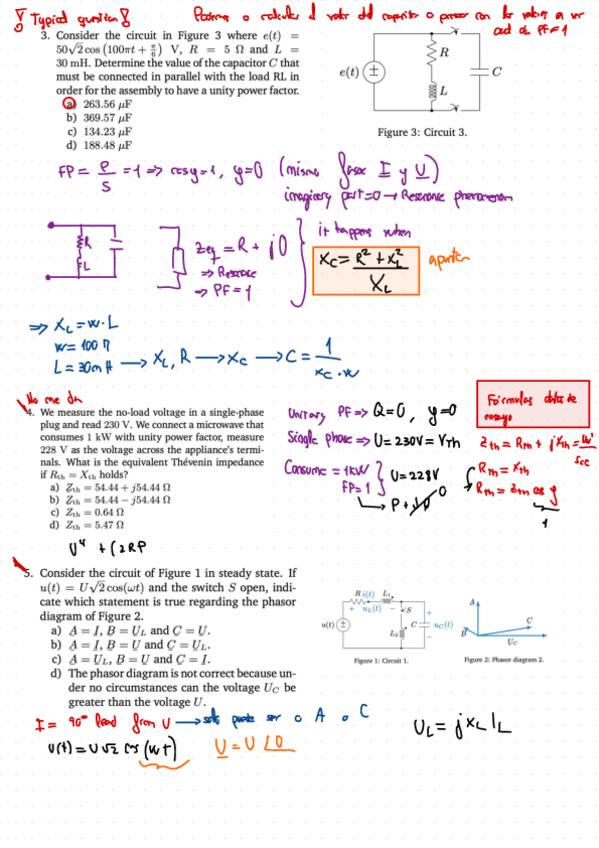 Typical question!
3. Consider the circuit in Figure 3 where e(t) =
50√2 cos (100πt + π/6) V, R = 5 Ω and L =
30 mH. Determine the value of the capacitor C that
must be connected in parallel with the load RL in
order for the assembly to have a unity power factor.
a) 263.56 μF
b) 369.57 μF
c) 134.23 μF
d) 188.48 μF
e(t)
R
L
C
Figure 3: Circuit 3.
FP = P/S = 1 => cos φ = 1, φ = 0 (misma fase I y U)
imaginary part = 0 → Resonance phenomenon
R
L
Zeq = R + j0
=> Resonance
=> PF = 1
it happens when
Xc = R² + XL² / XL
apuntar
=> XL = w · L
w = 100 π
L = 30mH → XL, R → Xc → C = 1 / Xc · w
No me da
4. We measure the no-load voltage in a single-phase
plug and read 230 V. We connect a microwave that
consumes 1 kW with unity power factor, measure
228 V as the voltage across the appliance's termi-
nals. What is the equivalent Thévenin impedance
if Rth = Xth holds?
a) Zth = 54.44 + j54.44 Ω
b) Zth = 54.44 − j54.44 Ω
c) Zth = 0.64 Ω
d) Zth = 5.47 Ω
U⁴ + (2RP
Unitary PF => Q = 0, φ = 0
Single phase => U = 230V = Vth
Consume = 1kW
FP = 1
U = 228V
P + j0
0
Fórmulas
ensayo
Zth = Rth + jXth =
Scc
Rth = Xth
Rth = Zth cos φ
1
5. Consider the circuit of Figure 1 in steady state. If
u(t) = U√2 cos(ωt) and the switch S open, indi-
cate which statement is true regarding the phasor
diagram of Figure 2.
a) A = I, B = UL and C = U.
b) A = I, B = U and C = UL.
c) A = UL, B = U and C = I.
d) The phasor diagram is not correct because un-
der no circumstances can the voltage UC be
greater than the voltage U.
R i(t) L1
+ uL(t) −
u(t)
S
L2
C
+ uC(t) −
Figure 1: Circuit 1.
A
B
C
UC
Figure 2: Phasor diagram 2.
I = 90° lead from U → solo puede ser o A o C
u(t) = U √2 cos (wt)
U = U ∠0
UL = j XL IL